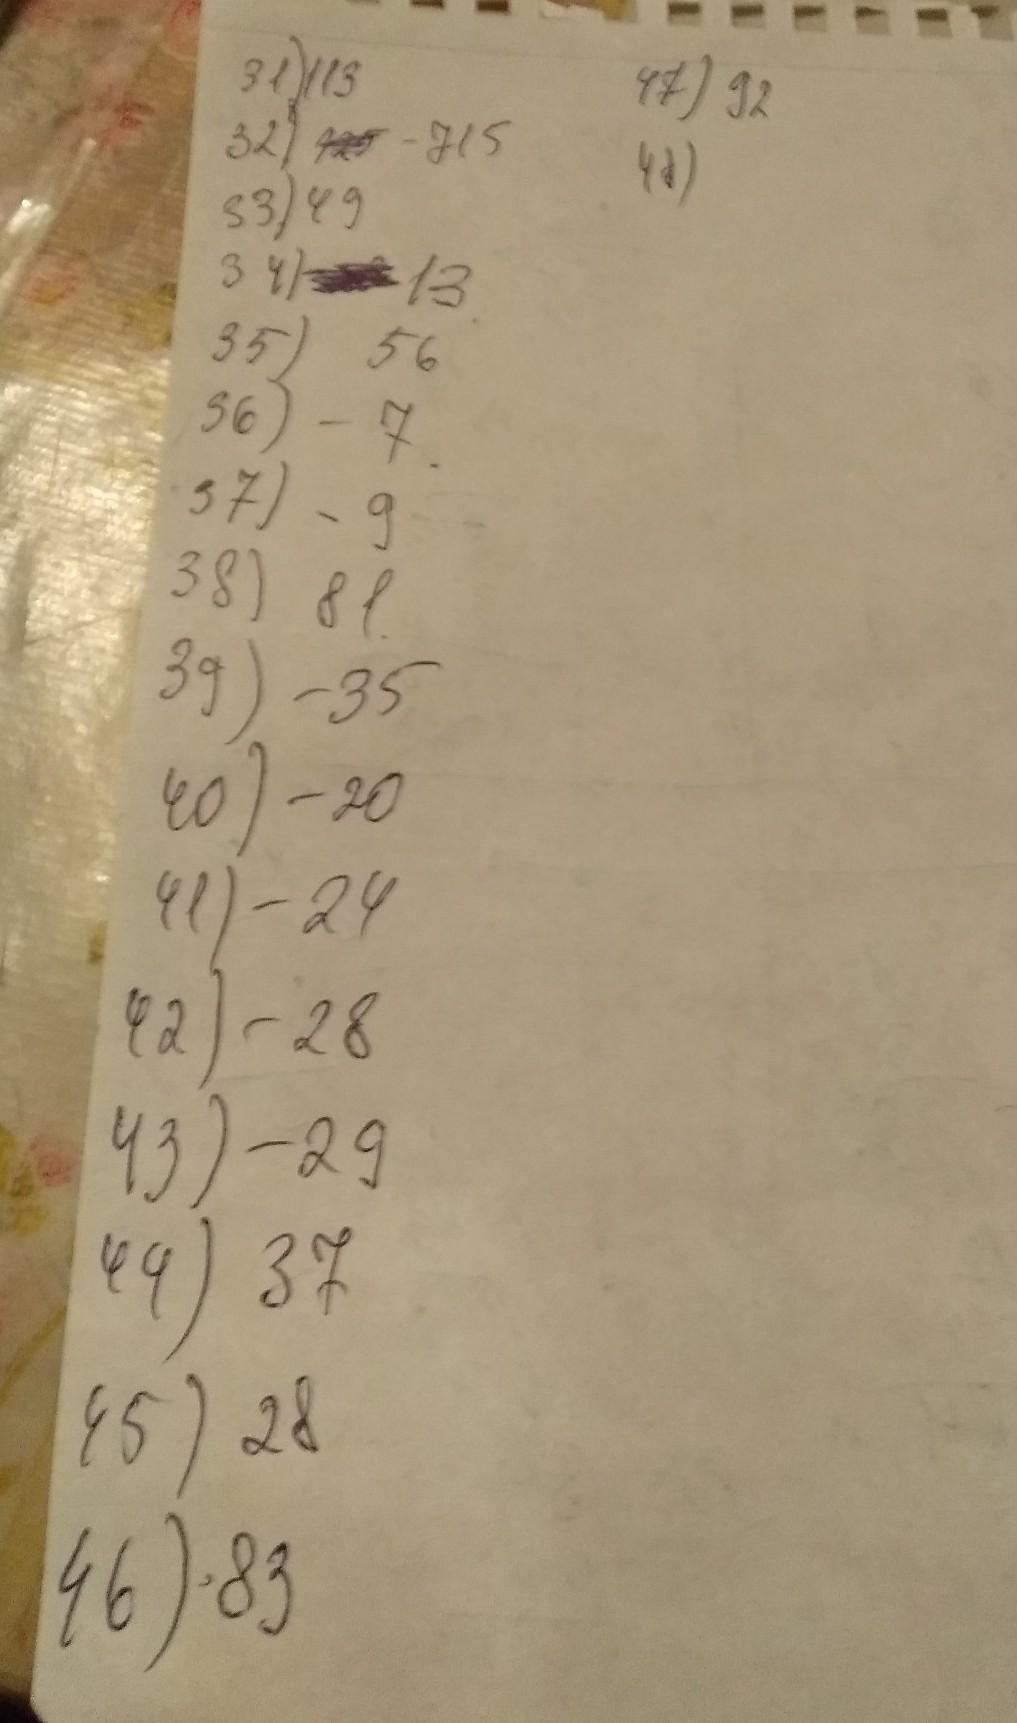 31) 113
32) -715
33) 49
34) 13
35) 56
36) - 7
37) - 9
38) 81
39) -35
40) -20
41) -24
42) -28
43) -29
44) 37
45) 28
46) 83
47) 92
48)